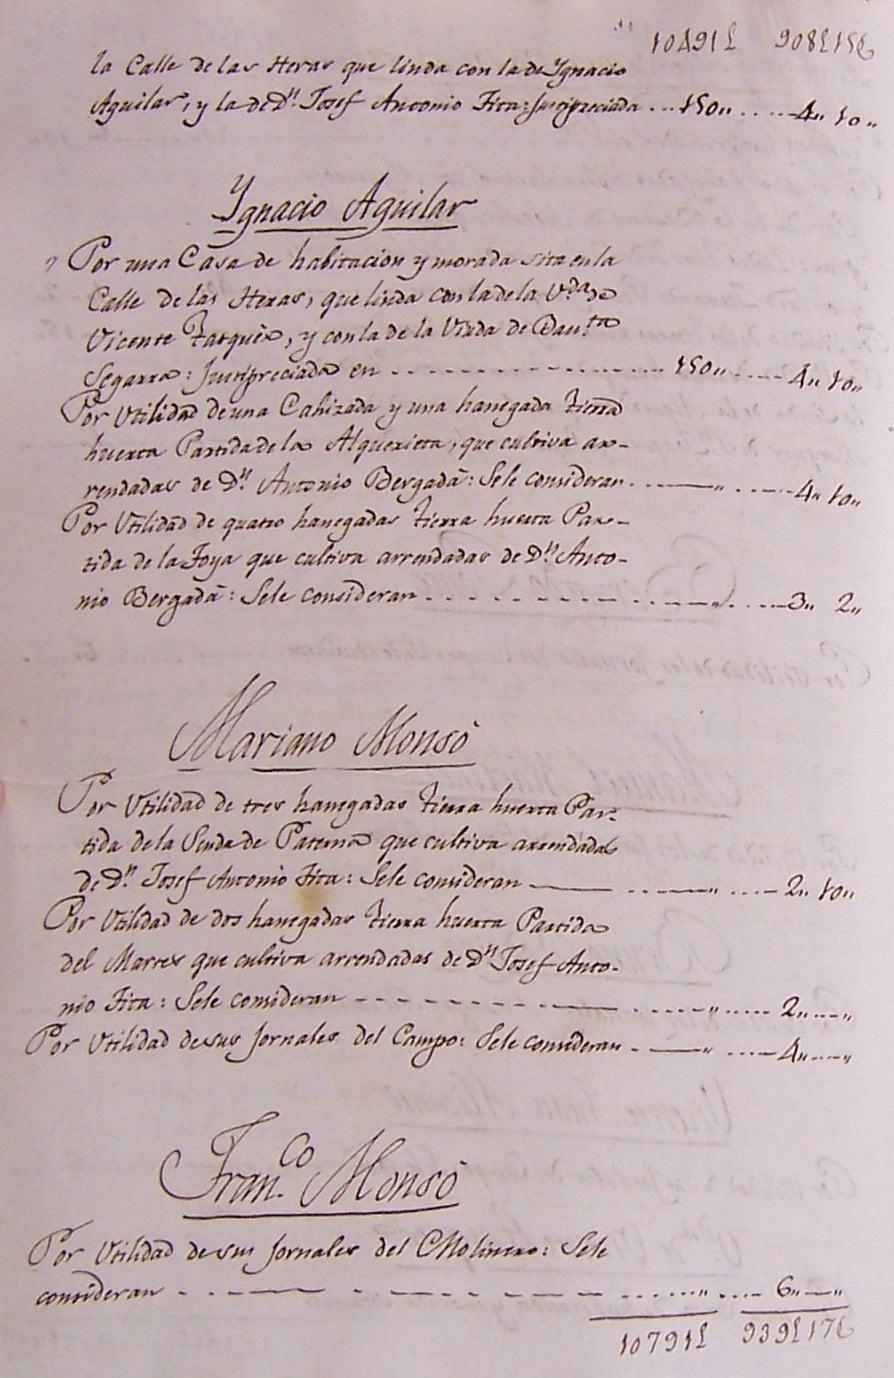 10491£ 908£15§
la Calle de las Heras que linda con la de Ygnacio
Aguilar, y la de Dn. Josef Antonio Fita: Justipreciada ... 150,, ..... 4,, 10,,
Ygnacio Aguilar
Por una Casa de habitacion y morada sita en la
Calle de las Heras, que linda con la de la V.da de
Vicente Tarquès, y con la de la Viuda de Bau.ta
Segarra: Justipreciada en ............... 150,, ..... 4,, 10,,
Por Utilidad de una Cahizada y una hanegada tierra
huerta Partida de la Alquerieta, que cultiva ar-
rendadas de Dn. Antonio Bergadà: Sele consideran ... ,, ..... 4,, 10,,
Por Utilidad de quatro hanegadas tierra huerta Par-
tida de la Foya que cultiva arrendadas de Dn. Anto-
nio Bergadà: Sele consideran ........... ,, ..... 3,, 2,,
Mariano Monsó
Por Utilidad de tres hanegadas tierra huerta Par-
tida de la Senda de Paterna que cultiva arrendadas
de Dn. Josef Antonio Fita: Sele consideran ...... ,, ..... 2,, 10,,
Por Utilidad de dos hanegadas tierra huerta Partida
del que cultiva arrendadas de Dn. Josef Anto-
nio Fita: Sele consideran ........... ,, ..... 2,, ... ,,
Por Utilidad de sus Jornales del Campo: Sele consideran ... ,, ..... 4,, ... ,,
Fran.co Monsó
Por Utilidad de sus Jornales del Molinero: Sele
consideran ........... ,, ..... 6,, ... ,,
10791£ 939£17§